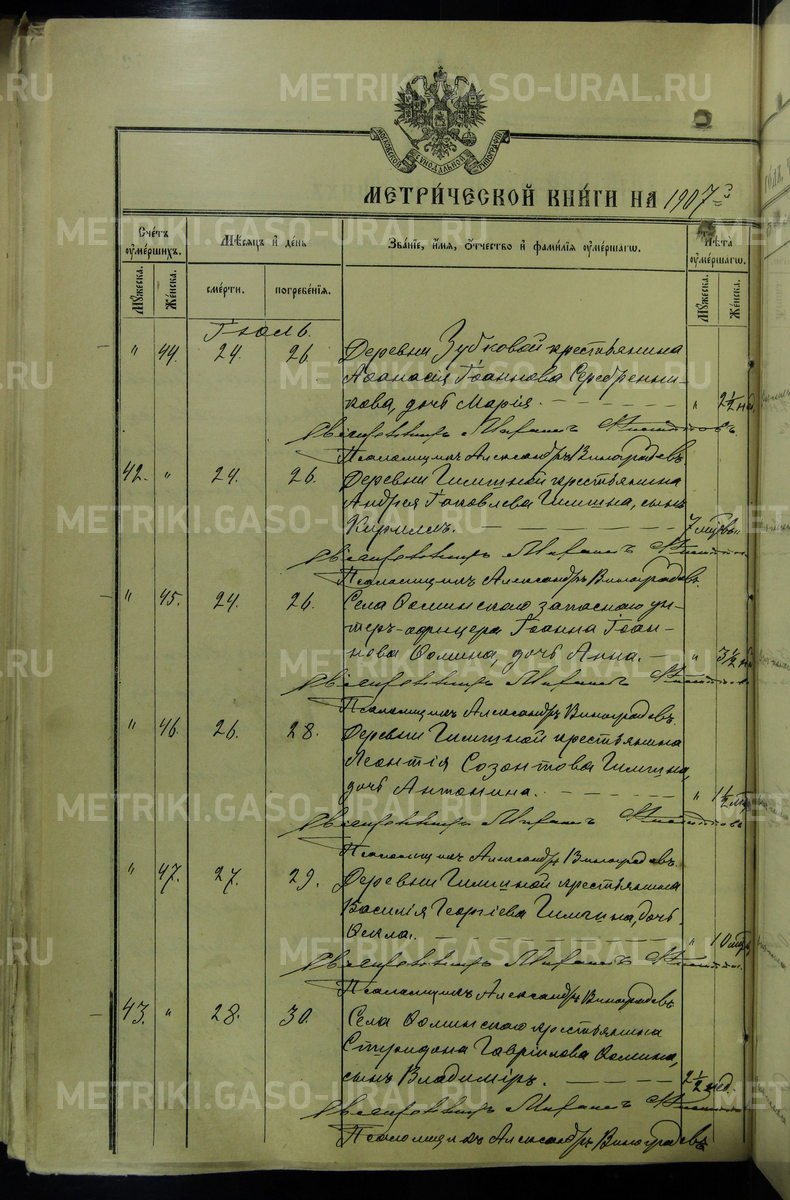 METRIKI.GASO-URAL.RU
МЕТРИ́ЧЕСКОЙ КНИ́ГИ НА 1907 г.
Сче́тъ оуме́ршихъ.
Мѣ́сяцъ и де́нь
Зва́нїе, и́мя, о́тчество и фами́лїя оуме́ршагѡ.
Лѣ́та оуме́ршагѡ.
Му́жеска.
Же́нска.
сме́рти.
погребе́нїя.
Му́жеска.
Же́нска.
Іюль.
" 44. 24. 26. Деревни Зубковой крестьянина
Аѳанасія Іоаннова Серебренни-
кова, дочь Марія. " 2½ нед.
Священникъ Михаилъ
Псаломщикъ Александръ Виноградовъ
42. " 24. 26. Деревни Чипиной крестьянина
Андрея Іаковлева Чипина, сынъ
Кириллъ. 7
Священникъ Михаилъ
Псаломщикъ Александръ Виноградовъ.
" 45. 24. 26. Села Ѳоминскаго запаснаго ун-
теръ-офицера Іоанна Іоан-
нова Ѳомина, дочь Анна. " 3½
Священникъ Михаилъ
Псаломщикъ Александръ Виноградовъ.
" 46. 26. 28. Деревни Чипиной крестьянина
Леонтія Созонтова Чипина,
дочь Антонина. " 1½
Священникъ Михаилъ
Псаломщикъ Александръ Виноградовъ.
" 47. 27. 29. Деревни Чипиной крестьянина
Василія Георгіева Чипина, дочь
Ѳекла. " 10
Священникъ Михаилъ
Псаломщикъ Александръ Виноградовъ
43. " 28. 30. Села Ѳоминскаго крестьянина
Спиридона Гаврилова Ѳомина,
сынъ Владиміръ. 2½ нед.
Священникъ Михаилъ
Псаломщикъ Александръ Виноградовъ